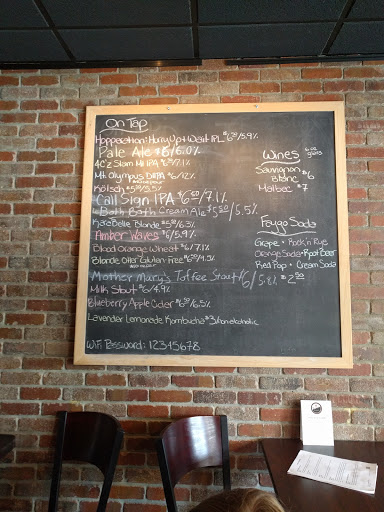 On Tap
Hopperation: Hurry Up + Wait IPL $6.50/5.9%
Pale Ale $6/6.0%
4C'z Slam Ml IPA
Mt. Olympus DIPA $6/12%
Kölsch $5.50/5.5%
Call Sign IPA $6.50/7.1%
Bath Cream Ale $5.50/5.5%
KateBelle Blonde $5.50/6.3%
Amber Waves $6/5.9%
Blood Orange Wheat $6/7.1%
Blonde Gluten-Free
Mother Mary's Toffee Stout $6/5.8%
Milk Stout $6/4.9%
Blueberry Apple Cider $6.50/6.5%
Lavender Lemonade Kombucha $3/nonalcoholic
Wifi Password: 12345678
Wines 6 oz glass
Sauvignon Blanc $6
Malbec $7
Faygo Soda
Grape • Rock'n Rye
Orange Soda • Root Beer
Red Pop • Cream Soda
$2.00